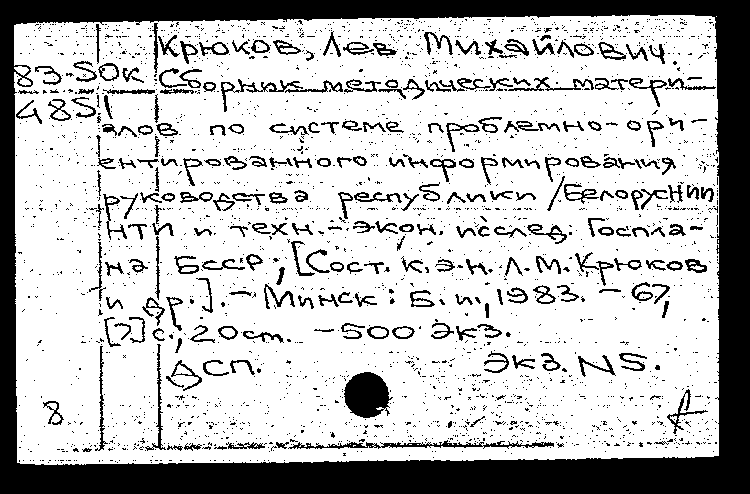 Крюков, Лев Михайлович.
83-50к Сборник методических матери-
4851
алов по системе проблемно-ори-
ентированного информирования
руководства республики /БелорусНИИ
НТИ и техн.-экон. исслед. Госпла-
на БССР; [Сост. к.э.н. Л.М.Крюков
и др.]. - Минск: Б.и., 1983. - 67,
[7]с.; 20см. - 500 экз.
ДСП. Экз. N5.
8